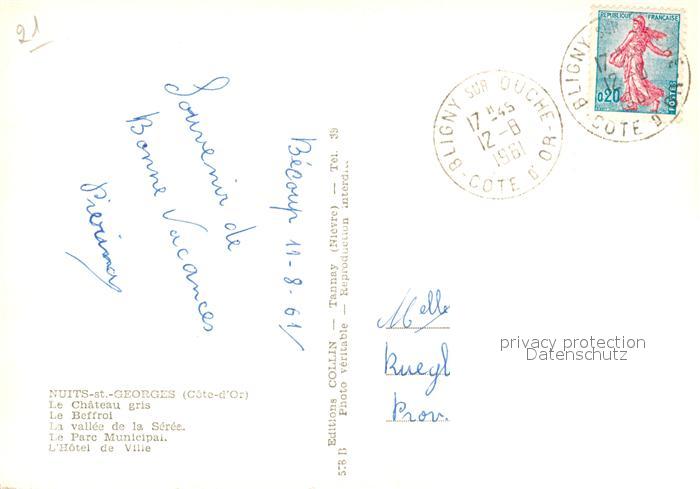 21
Bécoup 11-8-61
Souvenir de
Bonne Vacances
NUITS-st.-GEORGES (Côte-d'Or)
Le Château gris
Le Beffroi
La vallée de la Sérée.
Le Parc Municipal.
L'Hôtel de Ville
578 B
Editions COLLIN — Tannay (Nièvre) — Tél. 39
Photo véritable — Reproduction interdite
BLIGNY SUR OUCHE
17H45
12-8
1961
COTE D'OR
REPUBLIQUE FRANÇAISE
0,20
POSTES
BLIGNY SUR
COTE D'OR
Melle
Ruegl
Prov.
privacy protection
Datenschutz